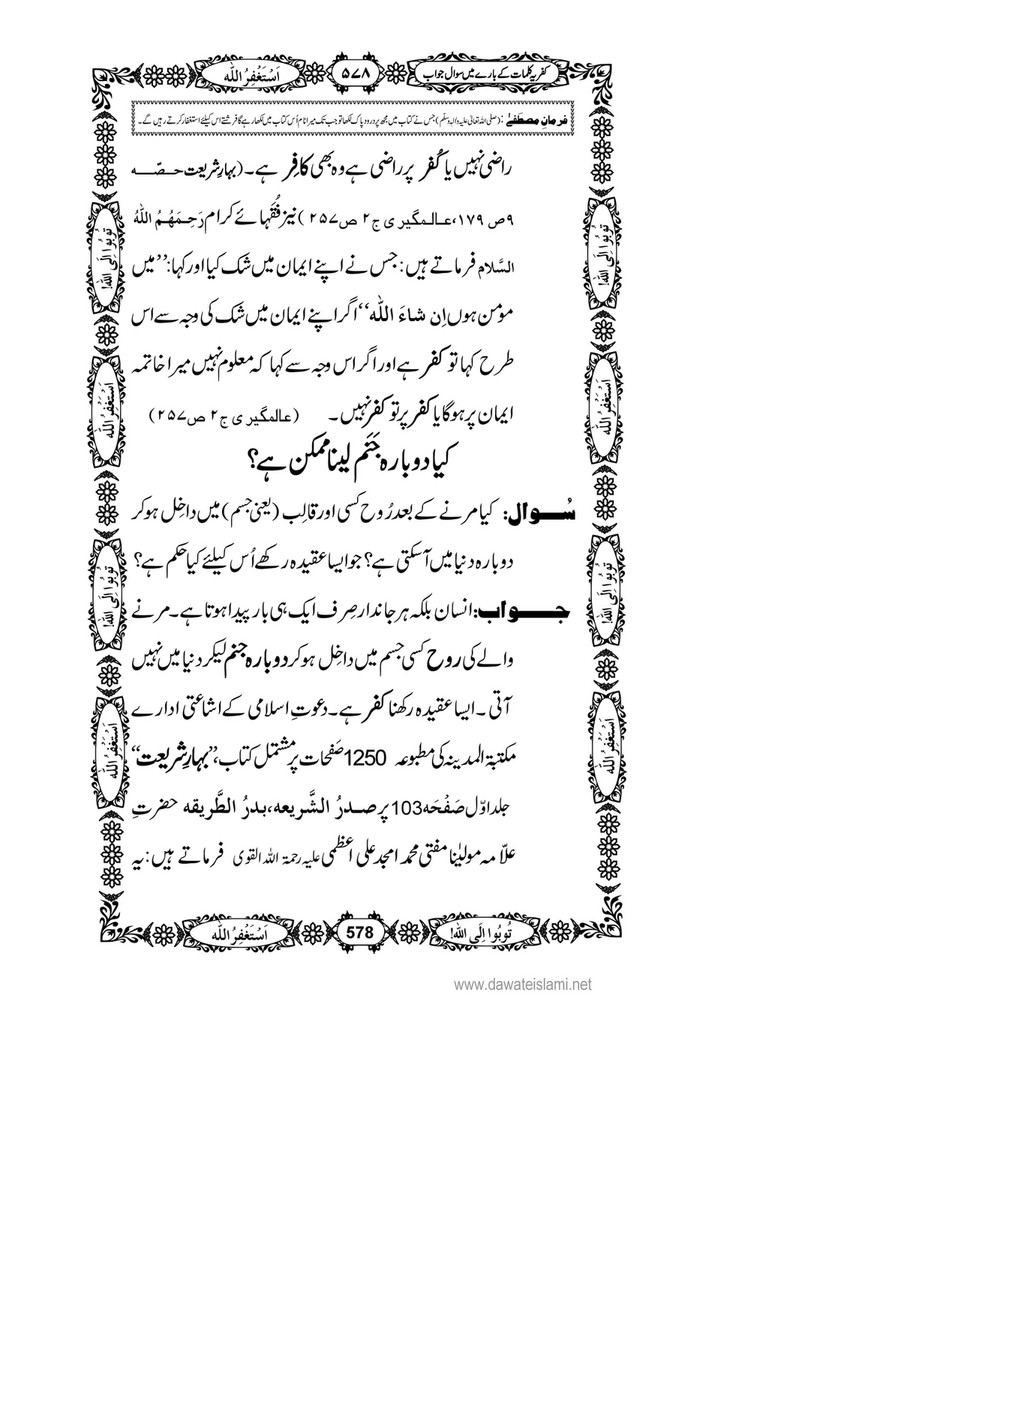 کفریہ کلمات کے بارے میں سوال جواب ۵۷۸ اَسْتَغْفِرُ اللّٰہ
فرمانِ مصطَفٰے : (صلی اللہ تعالیٰ علیہ والہٖ وسلّم) جس نے کتاب میں مجھ پر درود پاک لکھا تو جب تک میرا نام اُس کتاب میں لکھا رہے گا فرشتے اس کیلئے استغفار کرتے رہیں گے۔
راضی نہیں یا کُفر پر راضی ہے وہ بھی کافِر ہے۔ (بہارِ شریعت حصّہ
۹ ص ۱۷۹، عالمگیری ج ۲ ص ۲۵۷) نیز فُقَہائے کرام رَحِمَہُمُ اللّٰہُ
السَّلام فرماتے ہیں: جس نے اپنے ایمان میں شک کیا اور کہا: ’’میں
مؤمن ہوں اِن شاءَ اللّٰہ‘‘ اگر اپنے ایمان میں شک کی وجہ سے اس
طرح کہا تو کفر ہے اور اگر اس وجہ سے کہا کہ معلوم نہیں میرا خاتمہ
ایمان پر ہوگا یا کفر پر تو کفر نہیں۔ (عالمگیری ج ۲ ص ۲۵۷)
کیا دوبارہ جَنَم لینا ممکن ہے؟
سُوال: کیا مرنے کے بعد رُوح کسی اور قالِب (یعنی جسم) میں داخِل ہو کر
دوبارہ دنیا میں آسکتی ہے؟ جو ایسا عقیدہ رکھے اُس کیلئے کیا حکم ہے؟
جواب: انسان بلکہ ہر جاندار صِرف ایک ہی بار پیدا ہوتا ہے۔ مرنے
والے کی روح کسی جسم میں داخِل ہو کر دوبارہ جنم لیکر دنیا میں نہیں
آتی۔ ایسا عقیدہ رکھنا کفر ہے۔ دعوتِ اسلامی کے اشاعتی ادارے
مکتبۃ المدینہ کی مطبوعہ 1250 صَفَحات پر مشتمل کتاب، ’’بہارِ شریعت‘‘
جلد اوّل صَفْحَہ 103 پر صدرُ الشَّریعہ، بدرُ الطَّریقہ حضرتِ
علّامہ مولیٰنا مفتی محمد امجد علی اعظمی علیہ رحمۃ اللہ القوی فرماتے ہیں: یہ
تُوبُوا اِلَی اللّٰہ! 578 اَسْتَغْفِرُ اللّٰہ
تُوبُوا اِلَی اللّٰہ!
اَسْتَغْفِرُ اللّٰہ
تُوبُوا اِلَی اللّٰہ!
اَسْتَغْفِرُ اللّٰہ
تُوبُوا اِلَی اللّٰہ!
اَسْتَغْفِرُ اللّٰہ
تُوبُوا اِلَی اللّٰہ!
اَسْتَغْفِرُ اللّٰہ
www.dawateislami.net